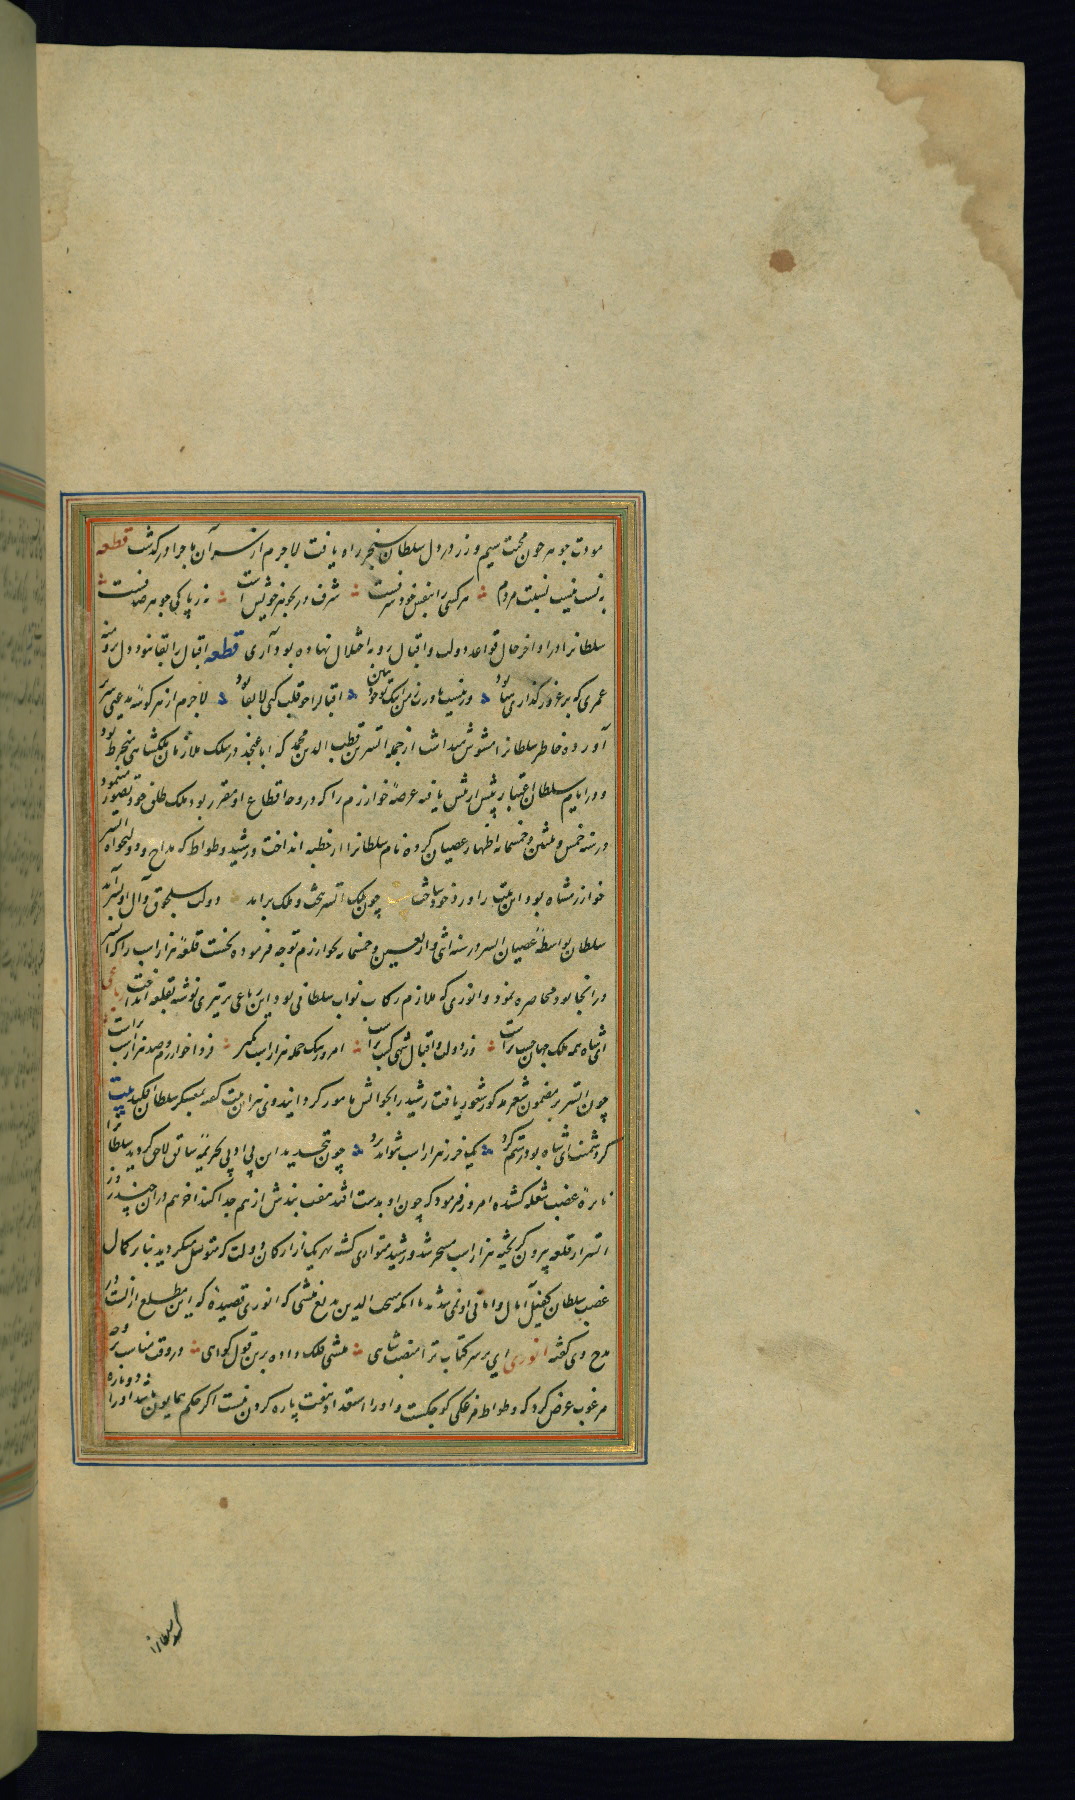 مودت جوهر چون محبت سیم و زر در دل سلطان سنجر راه یافت لاجرم از سر آن ماجرا درگذشت قطعه
به نسب نیست نسبت مردم هر کسی را بنفس خود شرفست شرف در بجوهر خویش است نه ز پاکی جوهر صدفست
سلطانرا در اواخر حال قواعد دولت و اقبال رو به اختلال نهاده بود آری قطعه اقبال را بقا نبود دل برو منه
عمری که بر غرور گذاری هبا بود ور نیست باورت ز من این نکته خود ببین اقبال را چو قلب کنی لابقا بود لاجرم از هر گوشه مدعی سر بر
آورده خاطر سلطانرا مشوش میداشت از جمله اتسز بن قطب الدین محمد که اباعنجد در سلک ملازمان ملکشاهی منخرط بود
و در ایام سلطان اعتبار پیش از پیش یافته عرصه خوارزم را که در وجه اقطاع او مقرر بود ملک طلق خود تصور مینمود
در سنه خمس و ثلثین و خمسمائه اظهار عصیان کرده نام سلطانرا از خطبه انداخت و رشید وطواط که مداح و دولتخواه اتسز
خوارزمشاه بود این بیت را در خود ساخت چون ملک اتسز بتخت و ملک برآمد دولت سلجوق و آل او بسر آمد
سلطان بواسطه عصیان اتسز در سنه اثنی و اربعین و خمسمائه بخوارزم توجه فرموده نخست قلعه هزاراسب را که اتسز
در آنجا بود محاصره نمود و انوری که ملازم رکاب نواب سلطانی بود این رباعی بر تیری نوشته بقلعه انداخت رباعی
ای شاه همه ملک جهان حسب تراست وز دولت و اقبال شهی کسب تراست امروز بیک حمله هزاراسب بگیر فردا خوارزم و صد هزار اسب تراست
چون اتسز بر مضمون شعر مذکور شعور یافت رشید را بجوابش مامور گردانید وی نیز این بیت گفته بمعسکر سلطان افکند بیت
گر دشمنت ای شاه بود رستم گرد یک خر ز هزار اسب نتواند برد چون تجدید این بی ادبی بجریمه سابق لاحق گردید سلطانرا
نایره غضب شعله کشیده امروز فرمود که چون او بدست افتد هفت بندش از هم جدا کنند آخر هم در آن چند روز
اتسز از قلعه بیرون گریخته هزاراسب مسخر شد و رشید متواری گشته بهر یک از ارکان دولت که متوسل میگردید بنابر کمال
غضب سلطان کفیل آمال و امانی او نمی شد تا آنکه منتجب الدین بدیع منشی که انوری قصیده که این مطلع از آنست در
مدح وی گفته انوری ای بر سر کتاب ترا منصب شاهی منشی فلک داده برین قول گواهی در وقت مناسب بر وجه
مرغوب عرض کرد که وطواط مرغکی کوچکست و او را استعداد هفت پاره کردن نیست اگر حکم همایون باشد او را دو پاره